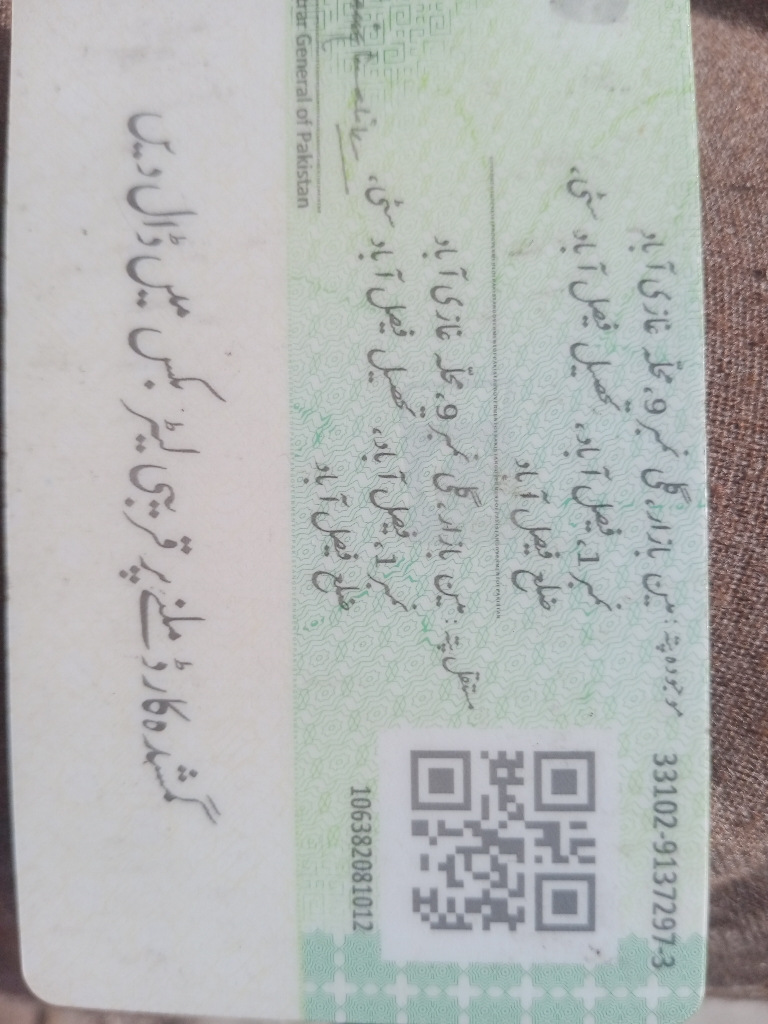 33102-9137297-3
موجودہ پتہ: مین بازار، گلی نمبر 9، محلہ غازی آباد
نمبر 1، فیصل آباد، تحصیل فیصل آباد سٹی،
ضلع فیصل آباد
مستقل پتہ: مین بازار، گلی نمبر 9، محلہ غازی آباد
نمبر 1، فیصل آباد، تحصیل فیصل آباد سٹی،
ضلع فیصل آباد
106382081012
General of Pakistan
گمشدہ کارڈ ملنے پر قریبی لیٹر بکس میں ڈال دیں